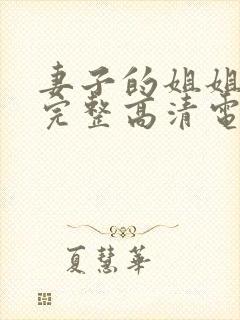 妻子的姐姐
完整高清電
夏慧華